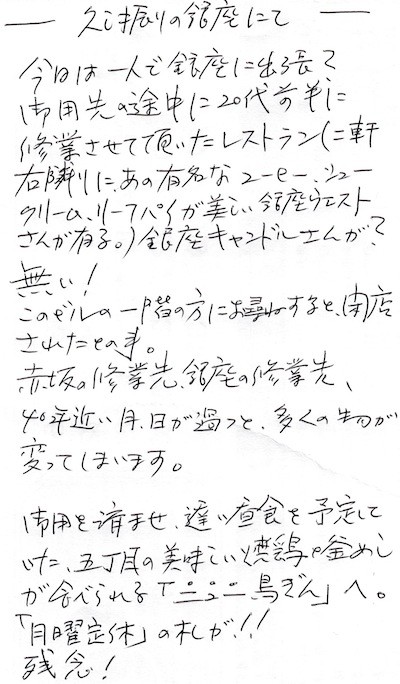 久し振りの銀座にて
今日は一人で銀座に出張?
御用先の途中に20代前半に
修業させて頂いたレストラン(二軒
右隣りに、あの有名なコーヒー、シュー
クリーム、リーフパイが美しい銀座ウエスト
さんが有る。)銀座キャンドルさんが?
無い!
このビルの一階の方にお尋ねすると、閉店
されたとの事。
赤坂の修業先、銀座の修業先、
40年近い月、日が過つと、多くの物が
変ってしまいます。
御用を済ませ、遅い昼食を予定して
いた、五丁目の美味しい焼鶏や釜めし
が食べられる「ニュー鳥ぎん」へ。
「月曜定休」の札が!!
残念!